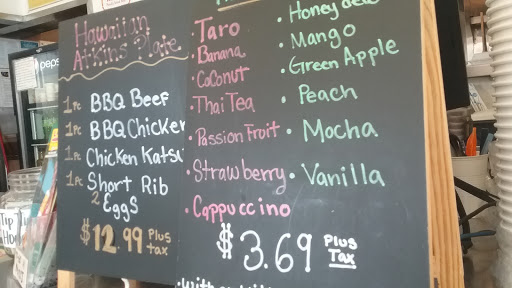 Hawaiian
Atkins Plate
1pc BBQ Beef
1pc BBQ Chicken
1pc Chicken Katsu
1pc Short Rib
2 Eggs
$12.99 Plus tax
• Taro
• Banana
• Coconut
• Thai Tea
• Passion Fruit
• Strawberry
• Cappuccino
• Honeydew
• Mango
• Green Apple
• Peach
• Mocha
• Vanilla
$3.69 Plus Tax
pepsi
Tip